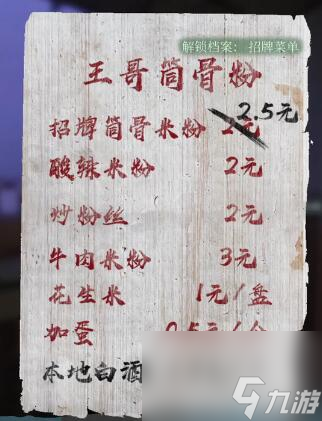 解锁档案: 招牌菜单
王哥筒骨粉
2.5元
招牌筒骨米粉 2元
酸辣米粉 2元
炒粉丝 2元
牛肉米粉 3元
花生米 1元/盘
加蛋
本地白酒
九游